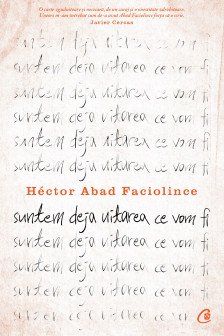 O carte și de un curaj și o
Uneori m-am întrebat cum de-a Abad Faciolince forța să o scrie.
Javier Cercas
suntem deja uitarea ce vom fi
suntem deja uitarea ce vom fi
suntem deja uitarea ce vom fi
suntem deja uitarea ce vom fi
suntem deja uitarea ce vom fi
suntem deja uitarea ce vom fi
Héctor Abad Faciolince
suntem deja uitarea ce vom fi
suntem deja uitarea ce vom fi
suntem deja uitarea ce vom fi
suntem deja uitarea ce vom fi
suntem deja uitarea ce vom